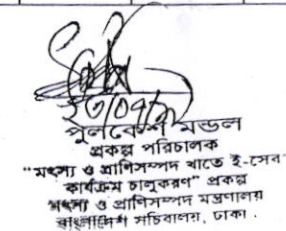 ২৩/০৭/
পুলকেশ মন্ডল
প্রকল্প পরিচালক
"মৎস্য ও প্রাণিসম্পদ খাতে ই-সেবা
কার্যক্রম চালুকরণ" প্রকল্প
মৎস্য ও প্রাণিসম্পদ মন্ত্রণালয়
বাংলাদেশ সচিবালয়, ঢাকা.